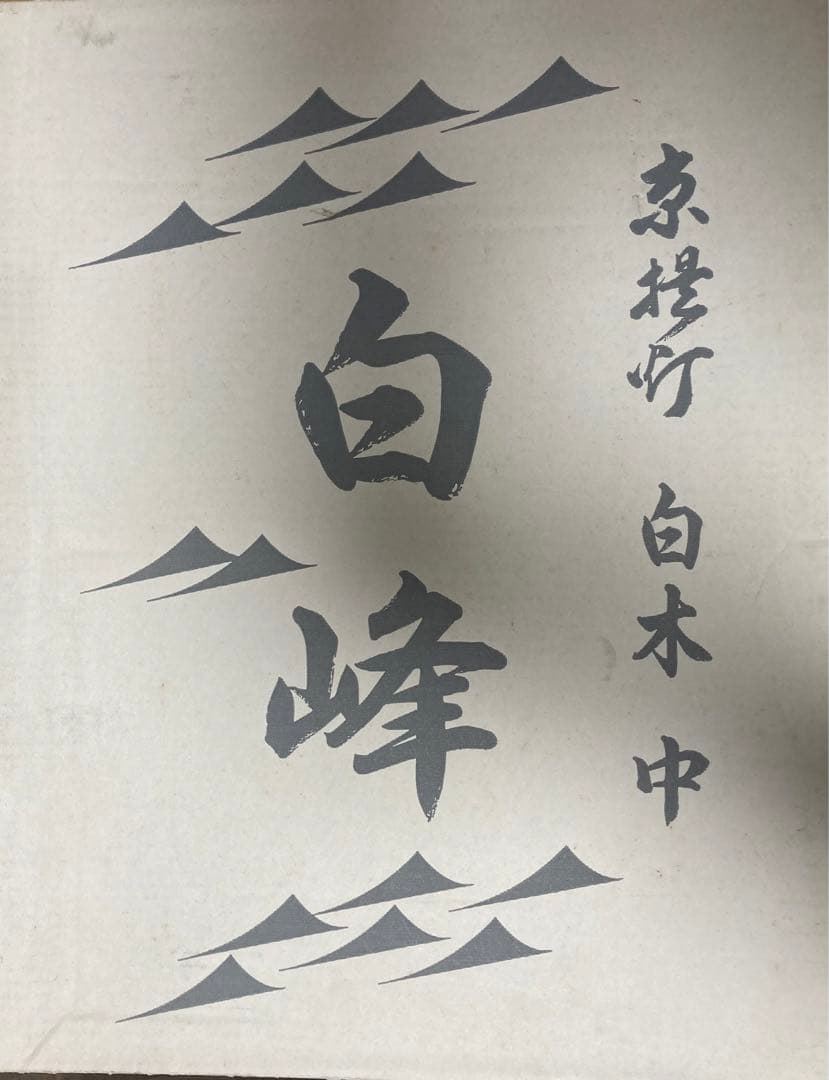 京提灯 白木 中
白峰